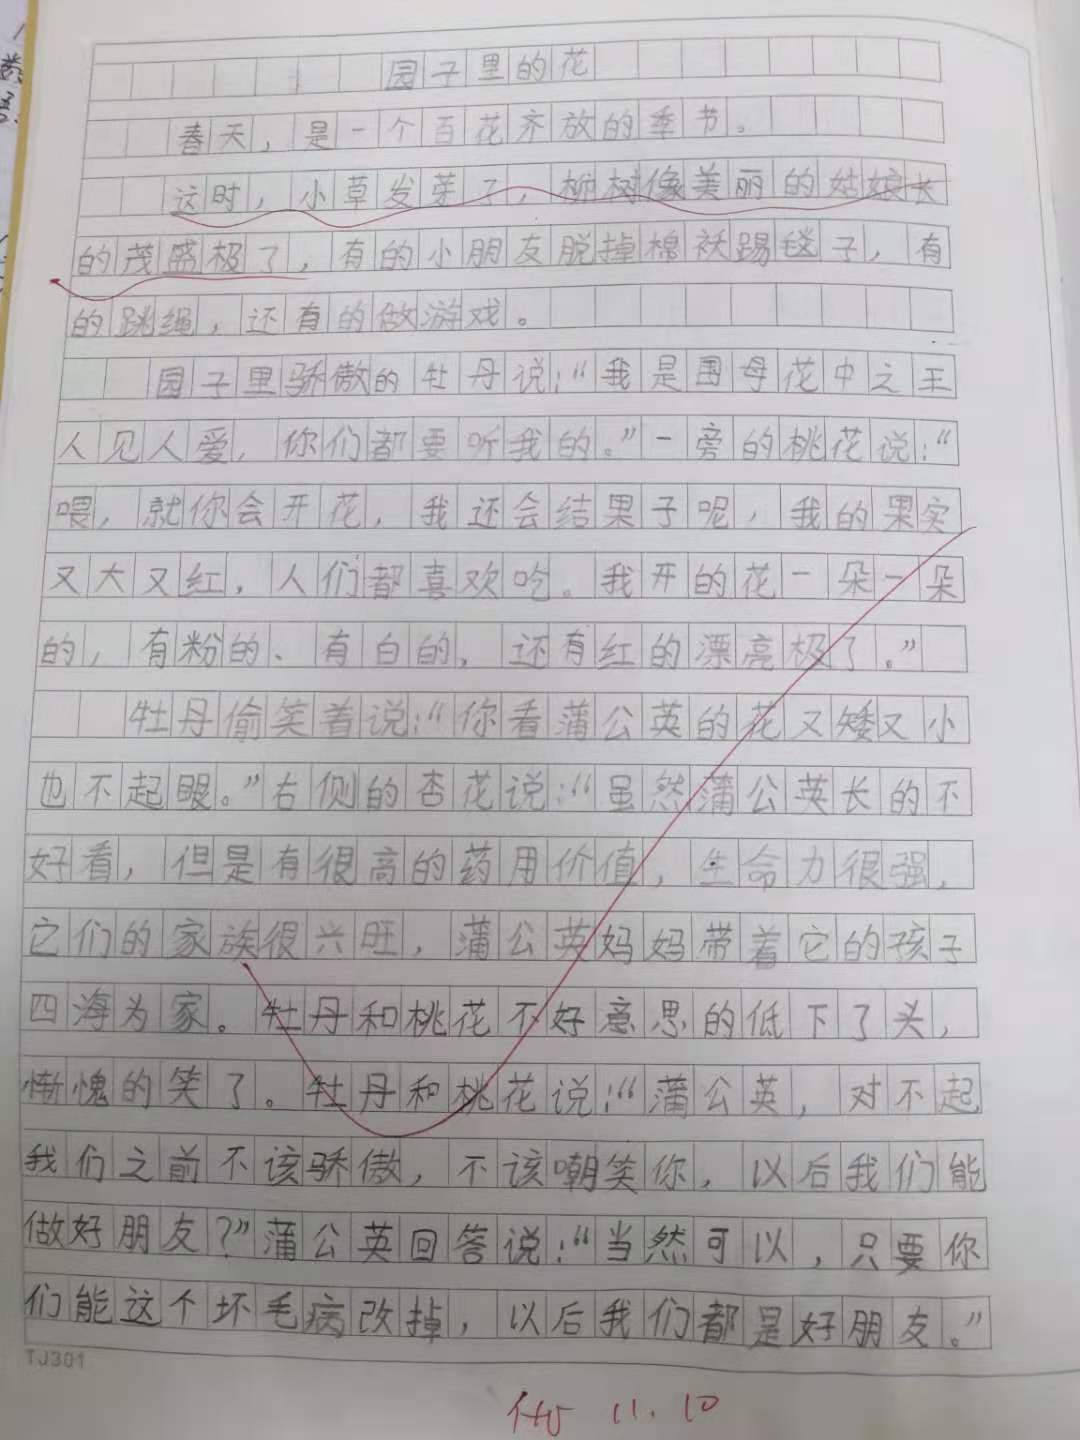 园子里的花
春天，是一个百花齐放的季节。
这时，小草发芽了，柳树像美丽的姑娘长
的茂盛极了，有的小朋友脱掉棉袄踢毯子，有
的跳绳，还有的做游戏。
园子里骄傲的牡丹说：“我是国母花中之王
人见人爱，你们都要听我的。”一旁的桃花说：“
喂，就你会开花，我还会结果子呢，我的果实
又大又红，人们都喜欢吃。我开的花一朵一朵
的，有粉的、有白的，还有红的漂亮极了。”
牡丹偷笑着说：“你看蒲公英的花又矮又小
也不起眼。”右侧的杏花说：“虽然蒲公英长的不
好看，但是有很高的药用价值，生命力很强，
它们的家族很兴旺，蒲公英妈妈带着它的孩子
四海为家。牡丹和桃花不好意思的低下了头，
惭愧的笑了。牡丹和桃花说：“蒲公英，对不起
我们之前不该骄傲，不该嘲笑你，以后我们能
做好朋友？”蒲公英回答说：“当然可以，只要你
们能这个坏毛病改掉，以后我们都是好朋友。”
TJ301
11.10